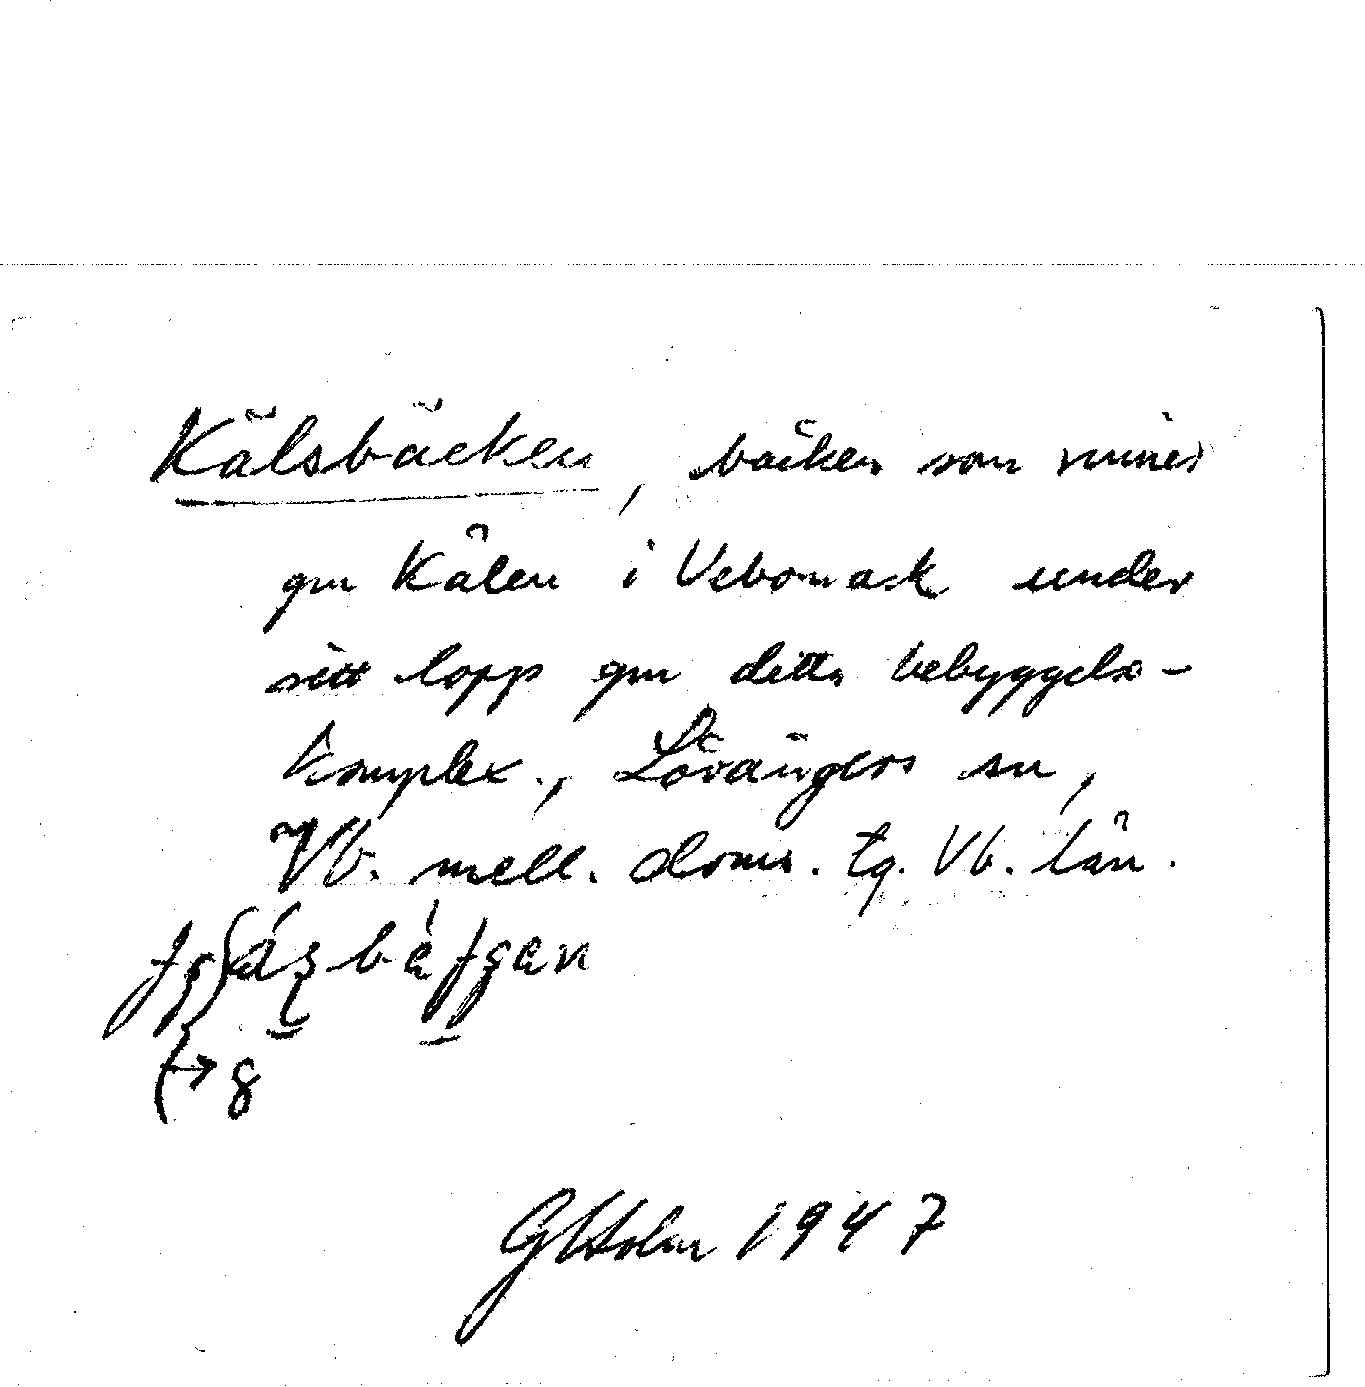 Kälsbäcken, bäcken som rinner
gm Kälen i Vebomark under
sitt lopp gm detta bebyggelse-
komplex., Lövångers sn,
Vb. mell. doms. tg. Vb. län.
GHolm 1947